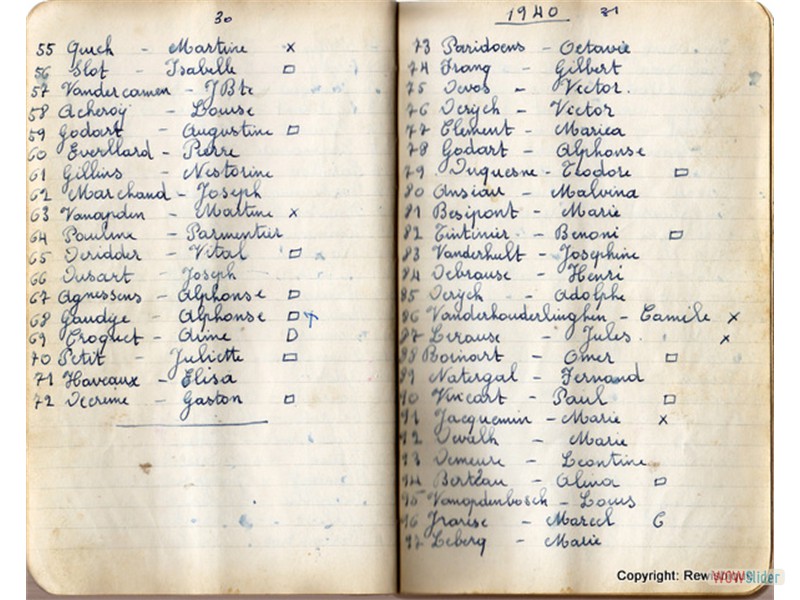 30
55 Guch - Martine x
56 Slot - Isabelle □
57 Vandercamen - JBte
58 Acheroy - Louise
59 Godart - Augustine □
60 Everllard - Pierre
61 Gillins - Nestorine
62 Marchand - Joseph
63 Vanapden - Martine x
64 Pauline - Parmentier
65 Deridder - Vital □
66 Dusart - Joseph
67 Agnessens - Alphonse □
68 Gaudye - Alphonse □
69 Croquet - Aline D
70 Petit - Juliette □
71 Haveaux - Elisa
72 Decrème - Gaston □
1940 31
73 Paridoens - Octavie
74 Franq - Gilbert
75 Devos - Victor.
76 Derych - Victor
77 Element - Mariea
78 Godart - Alphonse
79 Duquesne - Teodore □
80 Ansiau - Malvina
81 Besipont - Marie
82 Tintinier - Benoni □
83 Vanderhult - Josephine
84 Debrause - Henri
85 Derych - Adolphe
86 - Camile x
87 Lerause - Jules x
88 Boinart - Omer □
89 Natergal - Fernand
90 Vincart - Paul □
91 Jacquemin - Marie x
92 Devalh - Marie
93 Demeure - Leontine
94 Berteau - Alina □
95 Vanopdenbosch - Louis
96 - Marcel
97 Leberg - Marie
Copyright:
WOWSlider